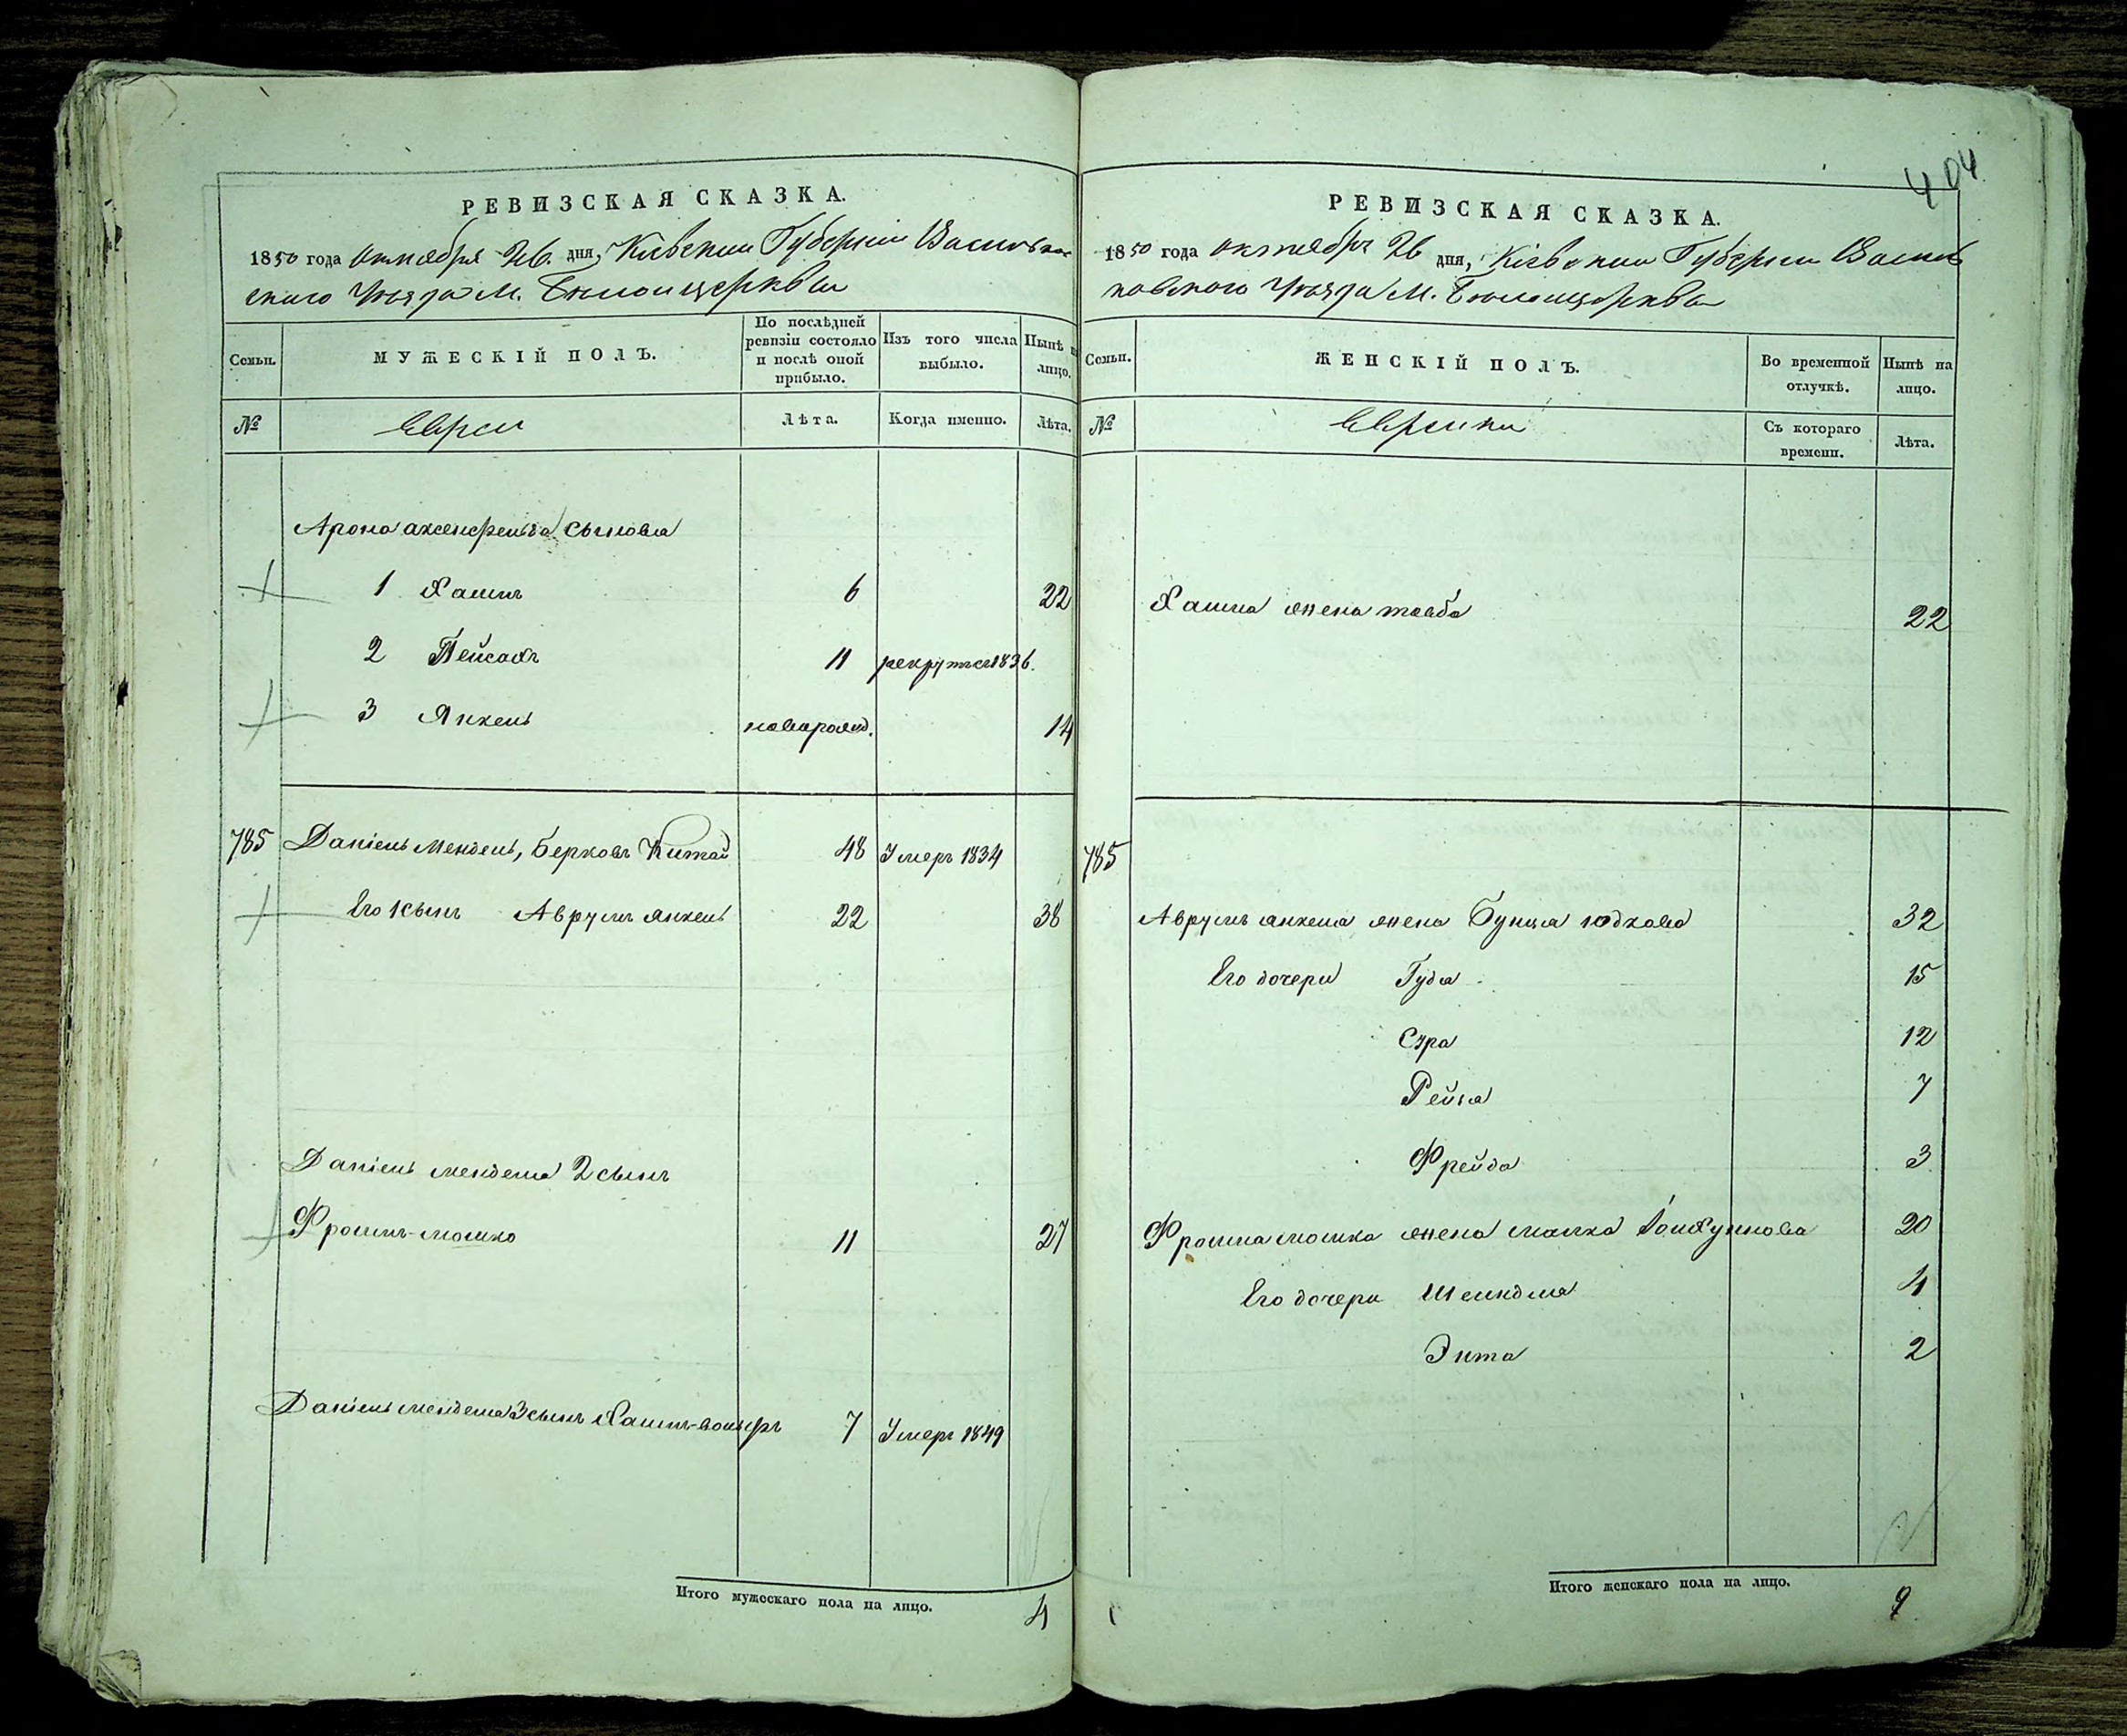 404
РЕВИЗСКАЯ СКАЗКА.
1850 года Октября 26 дня, Кіевской Губерніи Васильков
скаго Уезда М. Белойцеркви
Семьи.
МУЖЕСКІЙ ПОЛЪ.
По послѣдней ревизіи состояло и послѣ оной прибыло.
Изъ того числа выбыло.
Нынѣ на лицо.
№
Евреи
Лѣта.
Когда именно.
Лѣта.
Арона сыновья
1 Хаимъ 6 22
2 Пейсахъ 11 рекрутъ 1836.
3 Янкель новорожд. 14
785 Даніель Мендель, Берковъ Китай 48 Умеръ 1834
Его 1 сынъ Аврумъ янкель 22 38
Даніель менделя 2 сынъ
Фроимъ-мошко 11 27
Даніель менделя 3 сынъ Хаимъ-вольфъ 7 Умеръ 1849
Итого мужескаго пола на лицо. 4
РЕВИЗСКАЯ СКАЗКА.
1850 года октября 26 дня, Кіевской Губерніи Василь
ковскаго Уезда М. Белойцеркви
Семьи.
ЖЕНСКІЙ ПОЛЪ.
Во временной отлучкѣ.
Нынѣ на лицо.
№
Еврейки
Съ котораго времени.
Лѣта.
Хаима жена товба 22
785
Аврумъ янкеля жена Бунця юдкова 32
Его дочери Гудя 15
Сура 12
Рейзя 7
Фрейда 3
Фроима мошка жена малка 20
Его дочери Шейндля 4
Энта 2
Итого женскаго пола на лицо. 9